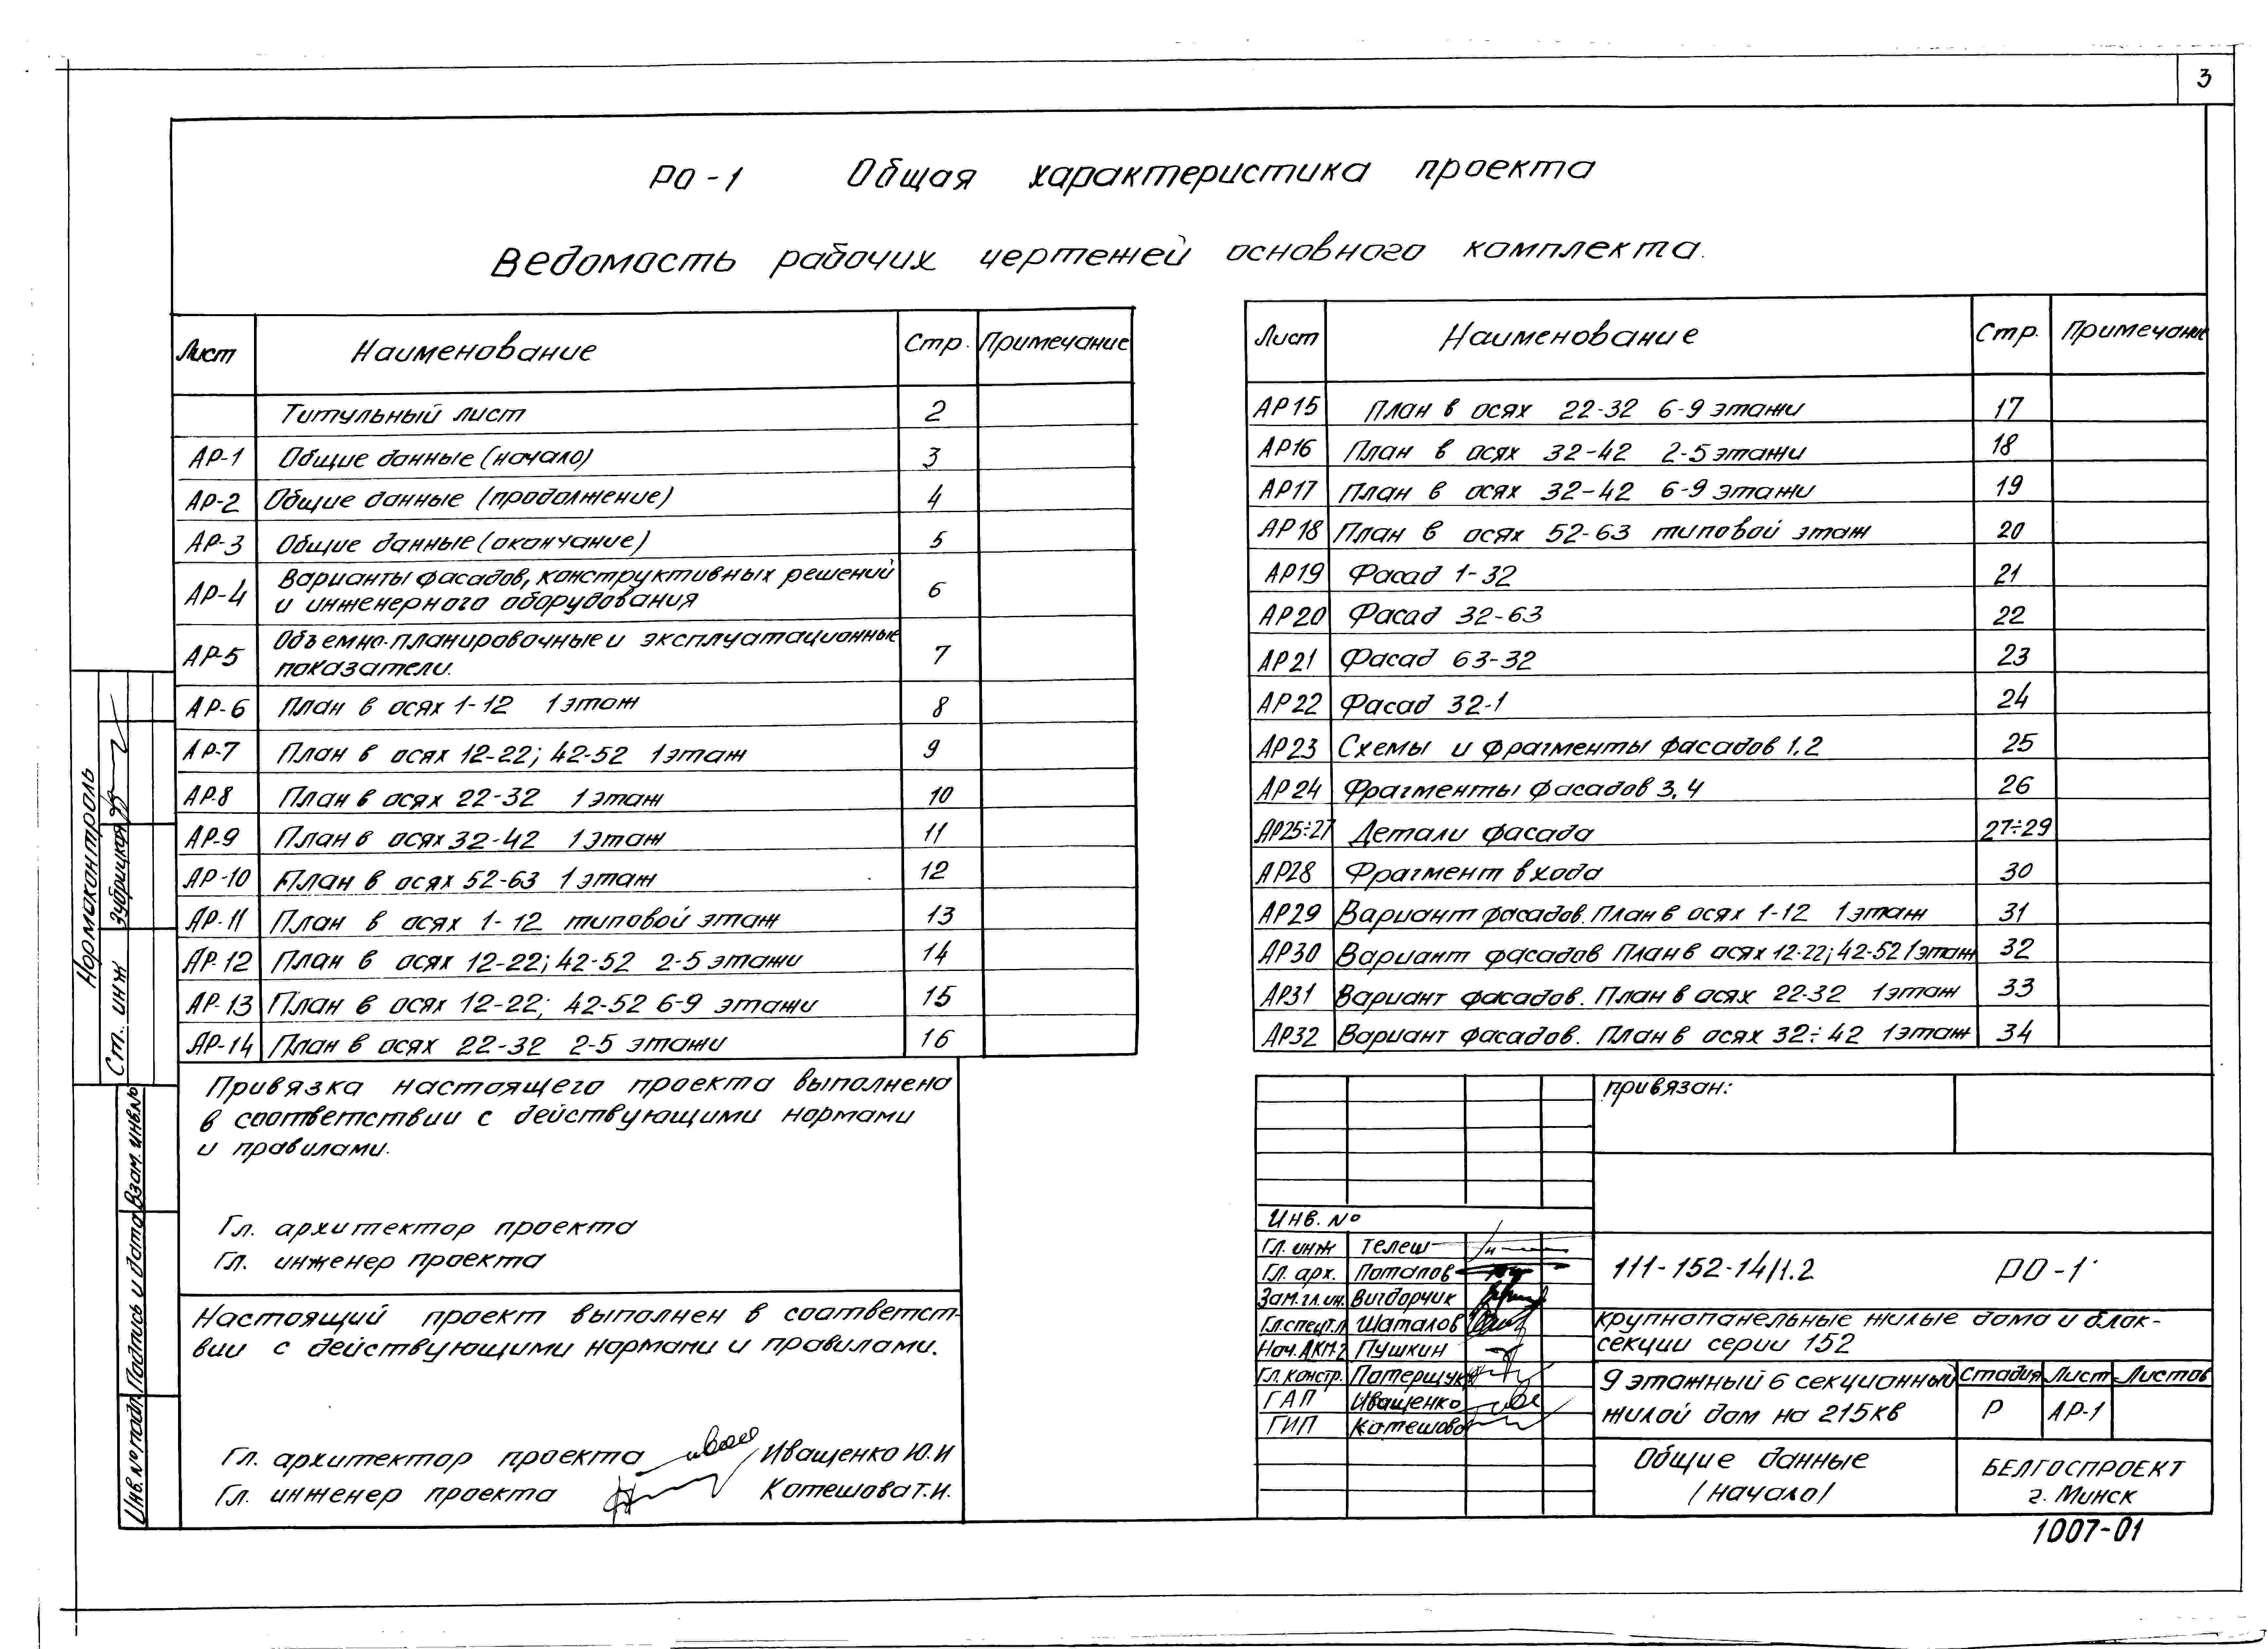 3
РО-1 Общая характеристика проекта
Ведомость рабочих чертежей основного комплекта.
Лист Наименование Стр. Примечание
Титульный лист 2
АР-1 Общие данные (начало) 3
АР-2 Общие данные (продолжение) 4
АР-3 Общие данные (окончание) 5
АР-4 Варианты фасадов, конструктивных решений
и инженерного оборудования 6
АР-5 Объемно-планировочные и эксплуатационные
показатели. 7
АР-6 План в осях 1-12 1 этаж 8
АР-7 План в осях 12-22; 42-52 1 этаж 9
АР-8 План в осях 22-32 1 этаж 10
АР-9 План в осях 32-42 1 этаж 11
АР-10 План в осях 52-63 1 этаж 12
АР-11 План в осях 1-12 типовой этаж 13
АР-12 План в осях 12-22; 42-52 2-5 этажи 14
АР-13 План в осях 12-22; 42-52 6-9 этажи 15
АР-14 План в осях 22-32 2-5 этажи 16
Лист Наименование Стр. Примечание
АР15 План в осях 22-32 6-9 этажи 17
АР16 План в осях 32-42 2-5 этажи 18
АР17 План в осях 32-42 6-9 этажи 19
АР18 План в осях 52-63 типовой этаж 20
АР19 Фасад 1-32 21
АР20 Фасад 32-63 22
АР21 Фасад 63-32 23
АР22 Фасад 32-1 24
АР23 Схемы и фрагменты фасадов 1,2 25
АР24 Фрагменты фасадов 3,4 26
АР25÷27 Детали фасада 27÷29
АР28 Фрагмент входа 30
АР29 Вариант фасадов. План в осях 1-12 1 этаж 31
АР30 Вариант фасадов План в осях 12-22; 42-52 1 этаж 32
АР31 Вариант фасадов. План в осях 22-32 1 этаж 33
АР32 Вариант фасадов. План в осях 32÷42 1 этаж 34
Привязка настоящего проекта выполнена
в соответствии с действующими нормами
и правилами.
Гл. архитектор проекта
Гл. инженер проекта
Настоящий проект выполнен в соответст-
вии с действующими нормами и правилами.
Гл. архитектор проекта Иващенко Ю.И
Гл. инженер проекта Котешова Т.И.
Нормоконтроль
Ст. инж Зубрицкая
Инв.№ подл. Подпись и дата Взам. инв.№
привязан:
Инв. №
Гл. инж Телеш
Гл. арх. Потапов
Зам. гл. ин. Вигдорчик
Гл.спец. Шаталов
Нач. АКМ-2 Пушкин
Гл. констр. Патерщук
ГАП Иващенко
ГИП Котешова
111-152-14/1.2 РО-1
крупнопанельные жилые дома и блок-
секции серии 152
9 этажный 6 секционный
жилой дом на 215кв
Стадия Лист Листов
Р АР-1
Общие данные
/начало/
БЕЛГОСПРОЕКТ
г. Минск
1007-01